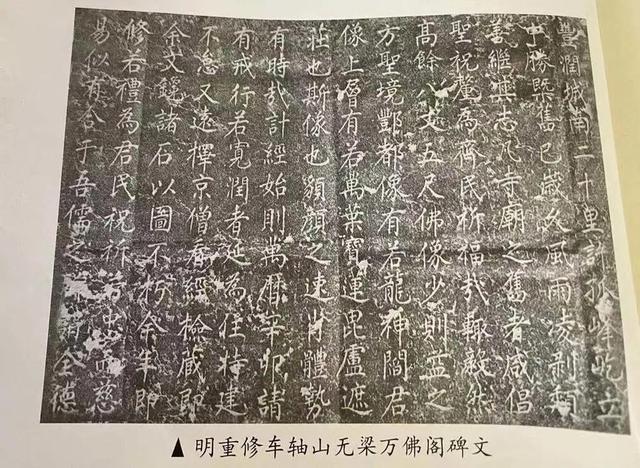 豐潤城南二十里許孤峰屹立
中勝槩舊已歲久風雨凌剥頹
善繼
志凡寺廟之舊者咸倡
聖祝釐為齊民祈福哉輙毅然
高餘八丈五尺佛像少則益之
方聖境酆都像有若龍神閻君
像上層有若萬葉寶蓮毘盧遮
莊也斯像也貌顏之逮肖體勢
有時哉計經始則萬曆辛卯諸
有戒行若寬潤者延為住持建
不怠又遠擇京僧看經檢藏即
余文鐫諸石以圖不朽余牟即
修若禮為君民祝祈
忠而慈
易似有合于吾儒之
全德
▲ 明重修车轴山无梁万佛阁碑文